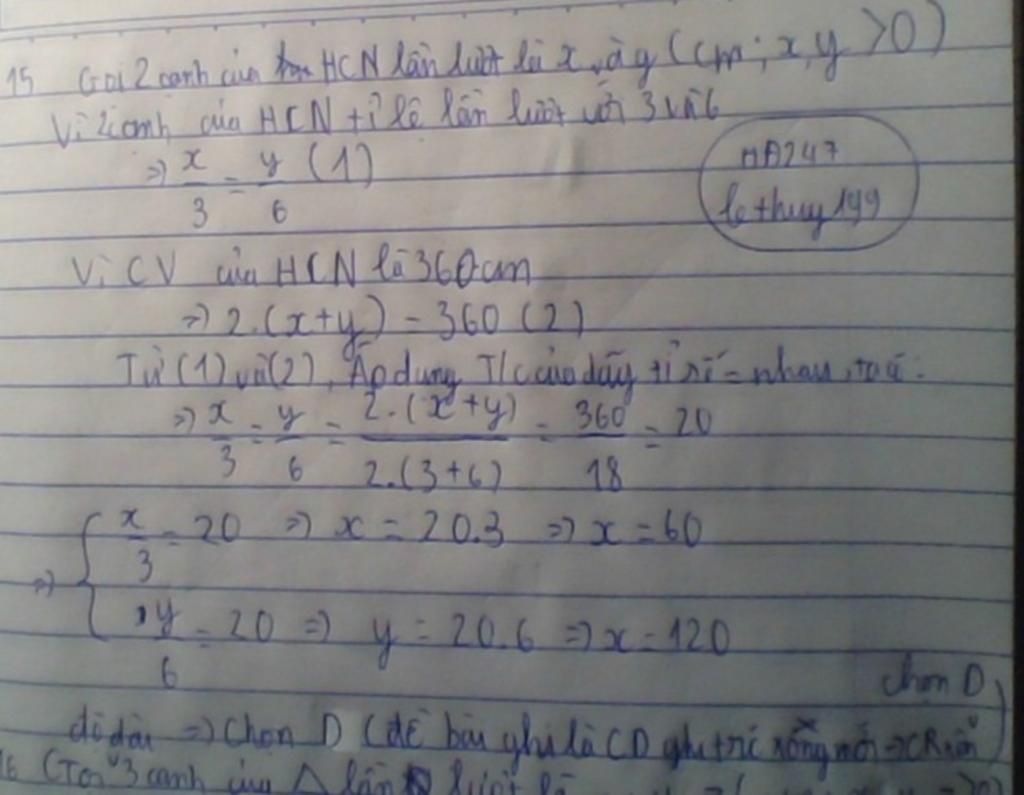 15 Gọi 2 cạnh của HCN lần lượt là x và y (cm; x, y >0)
Vì 2 cạnh của HCN tỉ lệ lần lượt với 3 và 6
=> x/3 = y/6 (1)
HA247
lethuy199
Vì CV của HCN là 360cm
=> 2.(x+y) = 360 (2)
Từ (1) và (2), Áp dụng T/c của dãy tỉ số = nhau, ta có:
=> x/3 = y/6 = 2.(x+y)/2.(3+6) = 360/18 = 20
=> { x/3 = 20 => x = 20.3 => x = 60
y/6 = 20 => y = 20.6 => x = 120
Chọn D
độ dài => Chọn D (đề bài ghi là CD
16 Gọi 3 cạnh của Δ lần lượt là